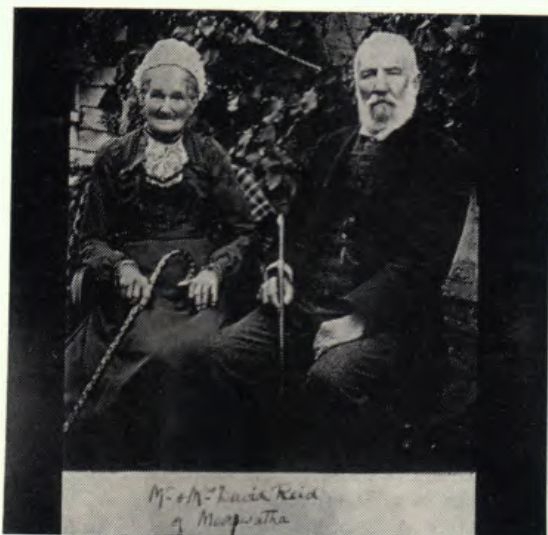 Mr & Mrs David Reid
of Moorwatha